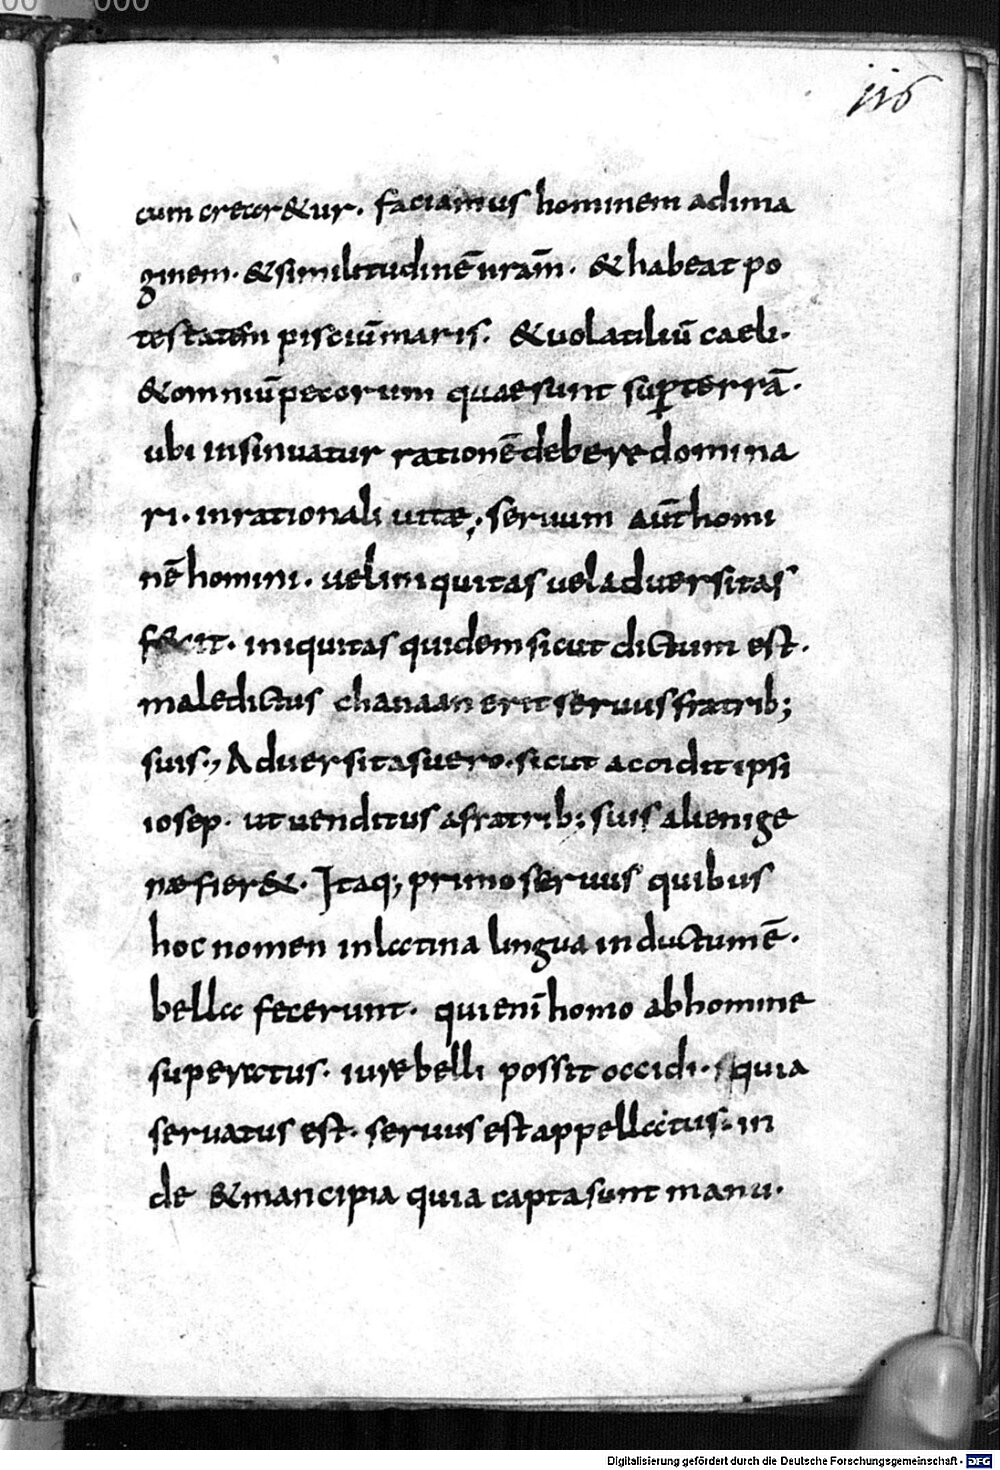 116
cum crecer&ur. faciamus hominem adima
ginem. &similitudinē nr̄am. & habeat po
testatem pisciū maris. & uolatiliū caeli.
& omniū pecorum quae sunt sup̱ terrā.
ubi insinuatur rationē debere domina
ri. inrationali uitae; seruum aūt homi
nē homini. uel iniquitas uel aduersitas
fecit. iniquitas quidem sicut dictum est.
maledictus chanaan erit seruus fratrib;
suis., Aduersitas uero. sicut accidit ipsi
iosep. ut uenditus a fratrib; suis alienige
næ fier&. Itaq; primo seruus quibus
hoc nomen inlatina lingua inductum ē.
bella fecerunt. qui enī homo abhomine
superatus. iure belli possit occidi. quia
seruatus est. seruus est appellatus. in
de & mancipia quia capta sunt manu.
Digitalisierung gefördert durch die Deutsche Forschungsgemeinschaft - DFG